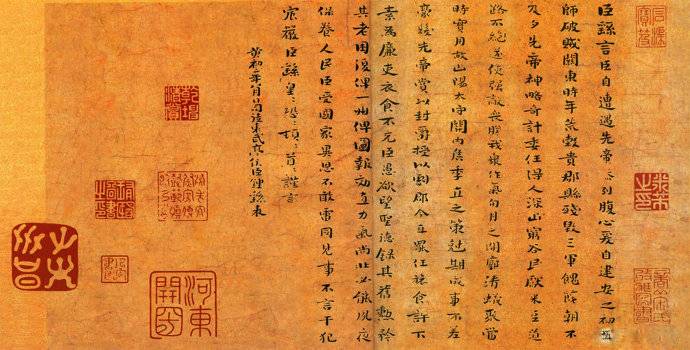 臣繇言臣自遭遇先帝忝列腹心爰自建安之初王
師破賊關東時年荒穀貴郡縣殘毀三軍餽饟朝不
及夕先帝神略奇計委任得人深山窮谷民獻米豆道
路不絕遂使強敵喪膽我眾作氣旬月之間廓清蟻聚當
時實用故山陽太守關內侯季直之策剋期成事不差
豪髮先帝賞以封爵授以劇郡今直罷任旅食許下
素為廉吏衣食不充臣愚欲望聖德錄其舊勳矜
其老困復俾一州俾圖報効直力氣尚壯必能夙夜
保養人民臣受國家異恩不敢雷同見事不言干犯
宸嚴臣繇皇〻恐〻頓〻首〻謹言
黃初二年八月日司徒東武亭侯臣鍾繇表
河東